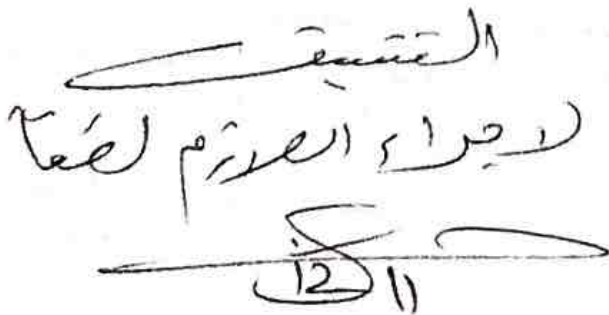 التنسيق
لاجراء اللازم لطفاً
12 11